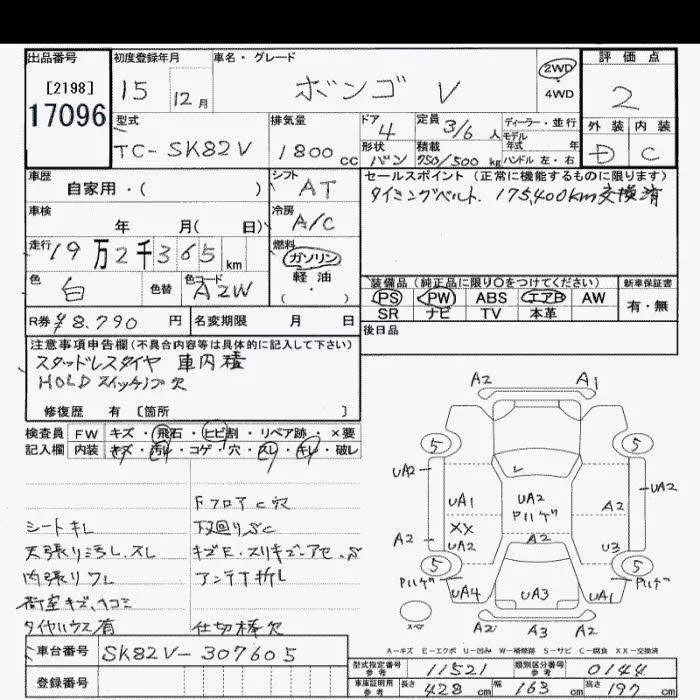 出品番号 初度登録年月 車名・グレード 2WD 4WD 評価点
[2198] 15 12月 ボンゴ V 2
17096 型式 排気量 ドア 4 定員 3/6人 ディーラー・並行 外装 内装
モデル年式 年式
TC-SK82V 1800cc 形状 バン 積載 750/500kg ハンドル 左・右 D C
車歴 シフト セールスポイント(正常に機能するものに限ります)
自家用・( ) AT タイミングベルト. 175,400km交換済
車検 冷房
年 月( 日) A/C
走行 燃料
19万2千365km ガソリン
軽油
色 色替 色コード ( ・ )
白 A2W
装備品(純正品に限り○をつけてください) 新車保証書
PS PW ABS エアB AW 有・無
SR ナビ TV 本革
R券 ¥8.790円 名変期限 月 日 後日品
注意事項申告欄(不具合内容等は具体的に記入して下さい)
スタッドレスタイヤ 車内積
HOLDスイッチノブ欠
修復歴 有 [箇所 ]
検査員 FW キズ・飛石・ヒビ割・リペア跡・×要
記入欄 内装 キズ・汚レ・コゲ・穴・スレ・キレ・破レ
FフロアC穴
シートキレ 下廻りSC
天張り汚レ.スレ
内張りワレ アンテナ折レ
荷室キズ、ヘコミ
タイヤハウス有 仕切棒欠
A2 A1
5 5
UA2 UA2
UA1 UA2 A2
Pハゲ
XX
A2 UA2 A2 U3
5 5
Pハゲ Pハゲ
UA4 UA3 UA1
A2 A3 A2
A-キズ E-エクボ U-凹み W-補修跡 S-サビ C-腐食 XX-交換済
車台番号 SK82V-307605
登録番号
型式指定番号 参考 11521 類別区分番号 参考 0144
車庫証明用 参考 長さ 428cm 幅 163cm 高さ 197cm